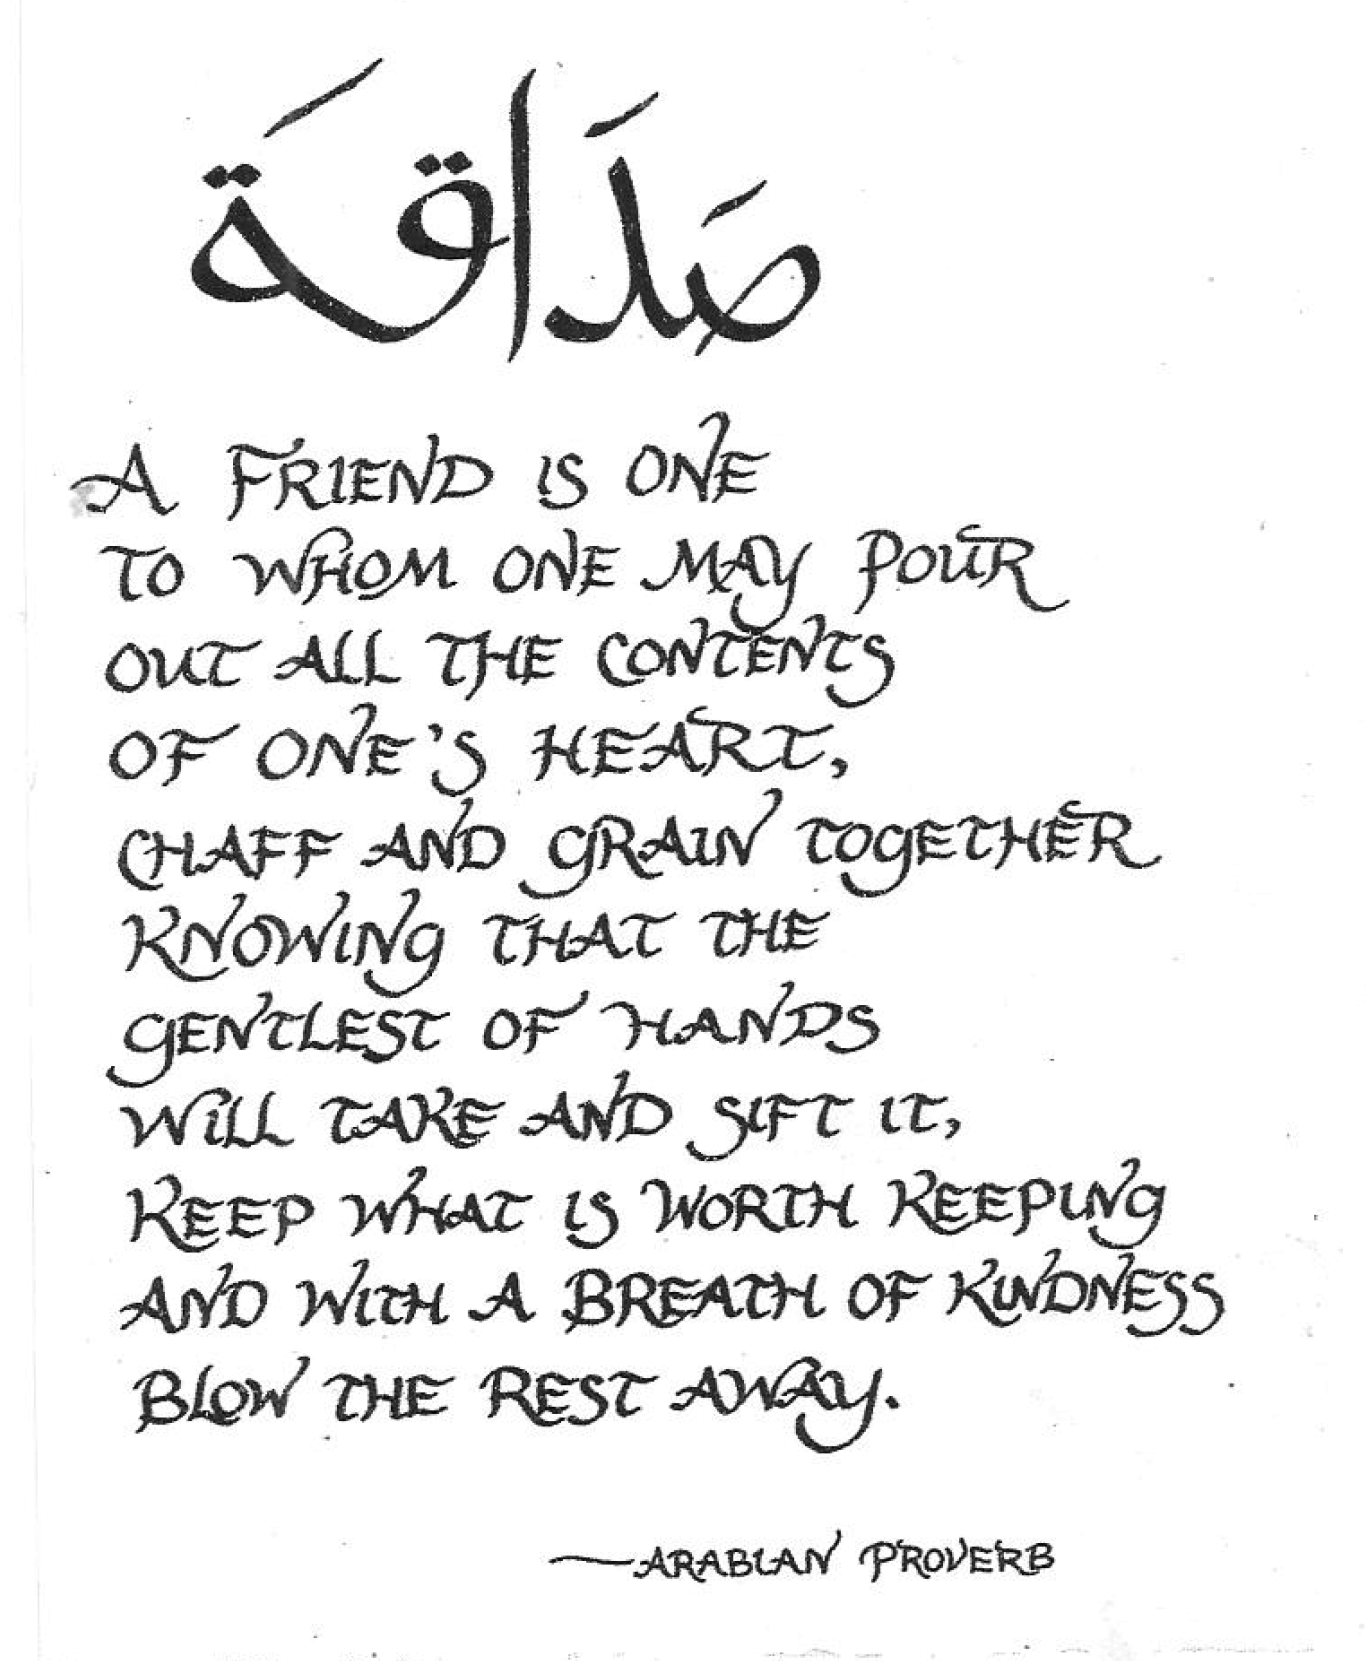 صَدَاقَة
A FRIEND IS ONE
TO WHOM ONE MAY POUR
OUT ALL THE CONTENTS
OF ONE'S HEART,
CHAFF AND GRAIN TOGETHER
KNOWING THAT THE
GENTLEST OF HANDS
WILL TAKE AND SIFT IT,
KEEP WHAT IS WORTH KEEPING
AND WITH A BREATH OF KINDNESS
BLOW THE REST AWAY.
—ARABIAN PROVERB